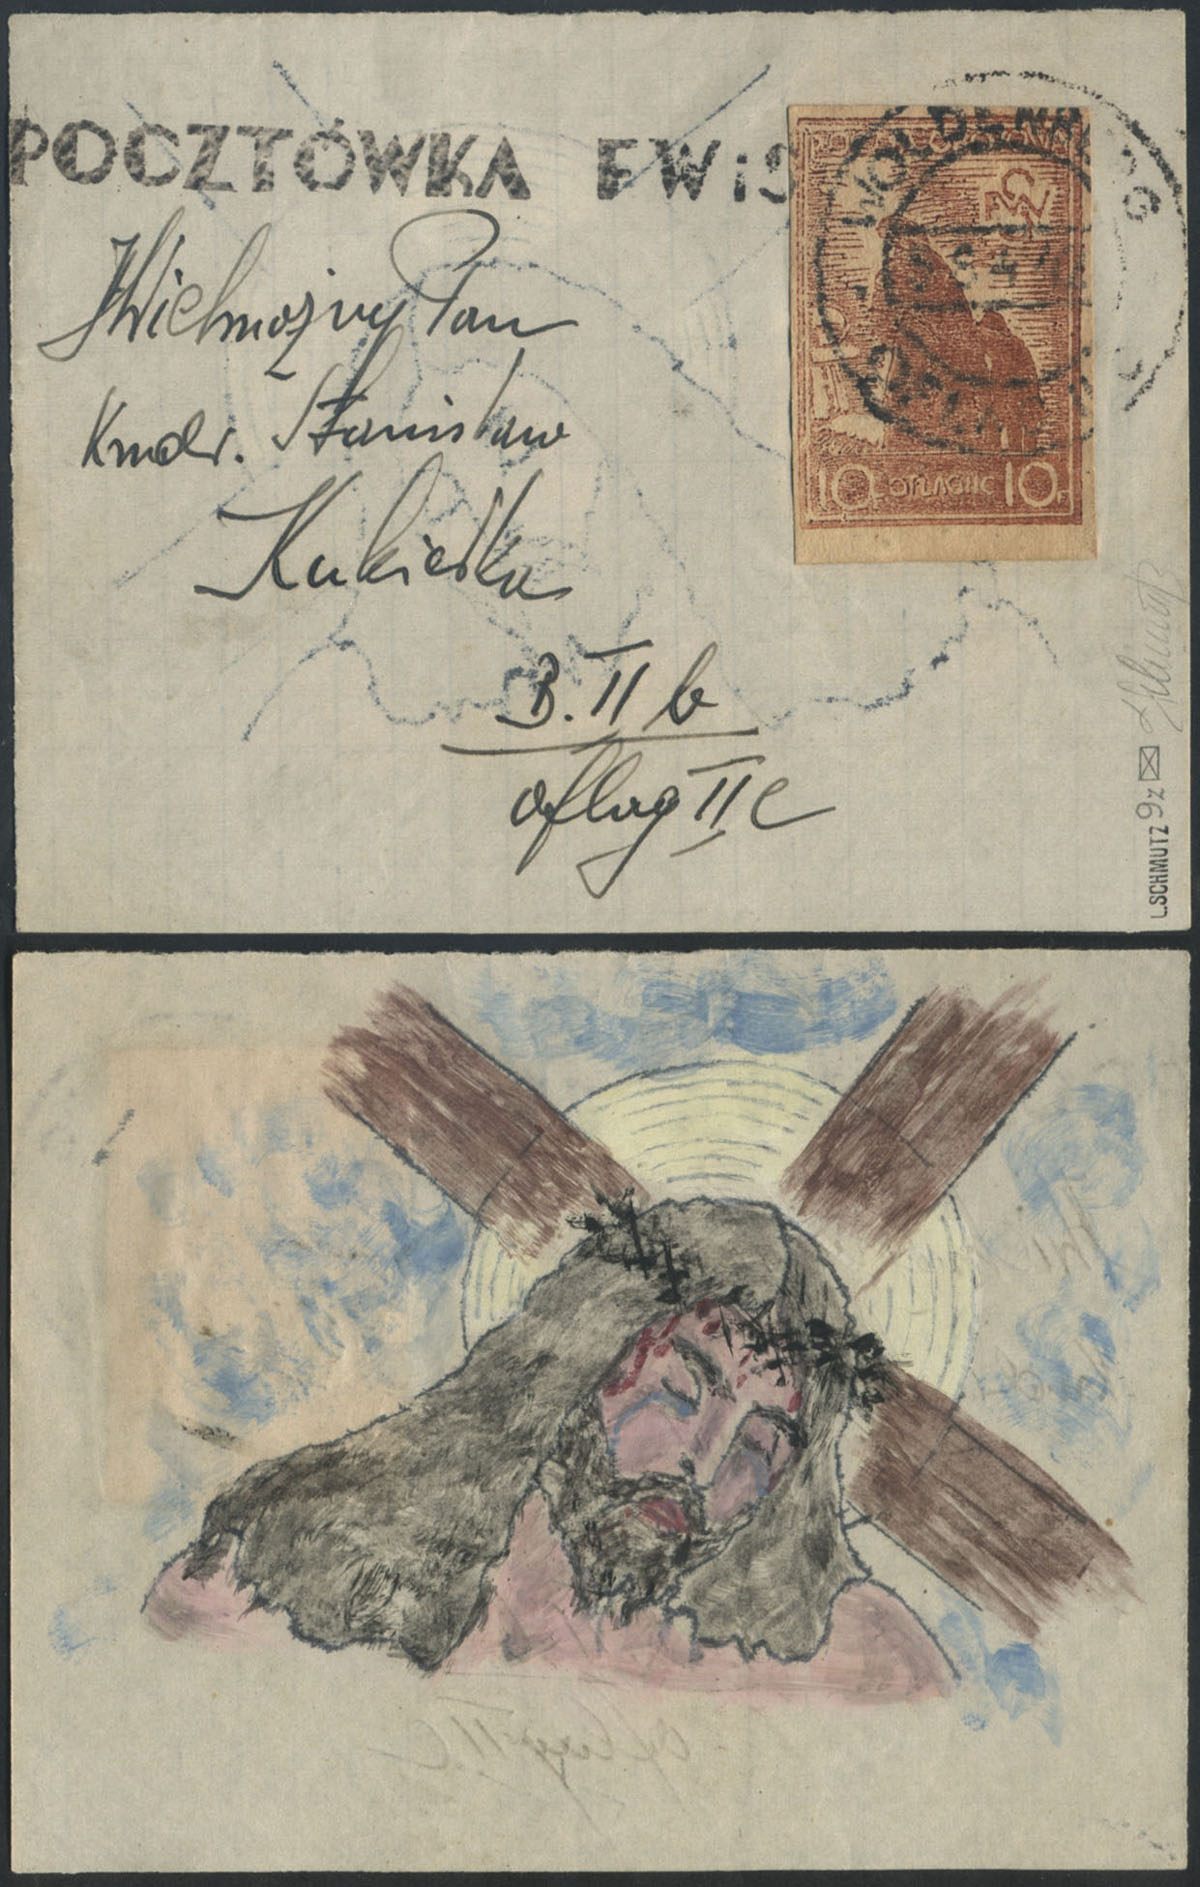 POCZTÓWKA FWiS
JWielmożny Pan
Kmdr. Stanisław
Kukiełka
B. II b
oflag II C
WOLDENBERG
10F OFLAG IIC 10F
L.SCHMUTZ 9z